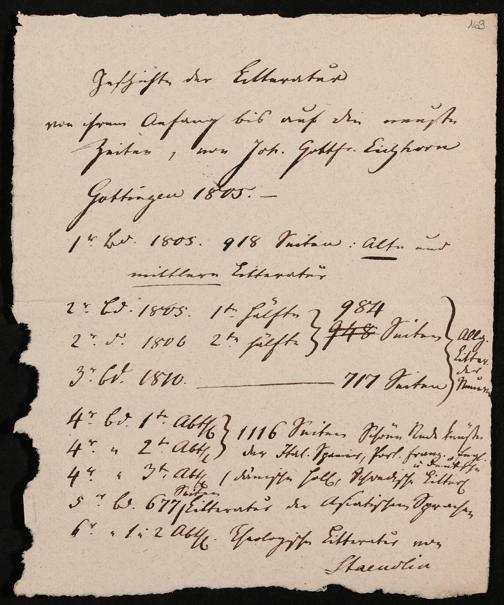 163.
Geschichte der Litteratur
von ihrem Anfang bis auf die neusten
Zeiten, von Joh. Gottfr. Eichhorn
Gottingen 1805. —
1r Bd. 1805. 918 Seiten: Alte und
mittlere Litteratur
2r Bd. 1805. 1te Hälfte 984
2r d. 1806 2te Hälfte 948 Seiten
3r Bd. 1810. — 717 Seiten
Allg. Litter. der Neuern
4r Bd. 1te Abth. 1116 Seiten Schöne Redekünste
4r " 2te Abth. der Ital. Spanier, Port. Franz. Engl.
u Deutschen
4r " 3te Abth. dänische Holl. Schwedische Litter.
5r Bd. 677 Seiten Litteratur der Asiatischen Sprachen
6r " 1 u 2 Abth. Theologische Litteratur von
Staeudlin